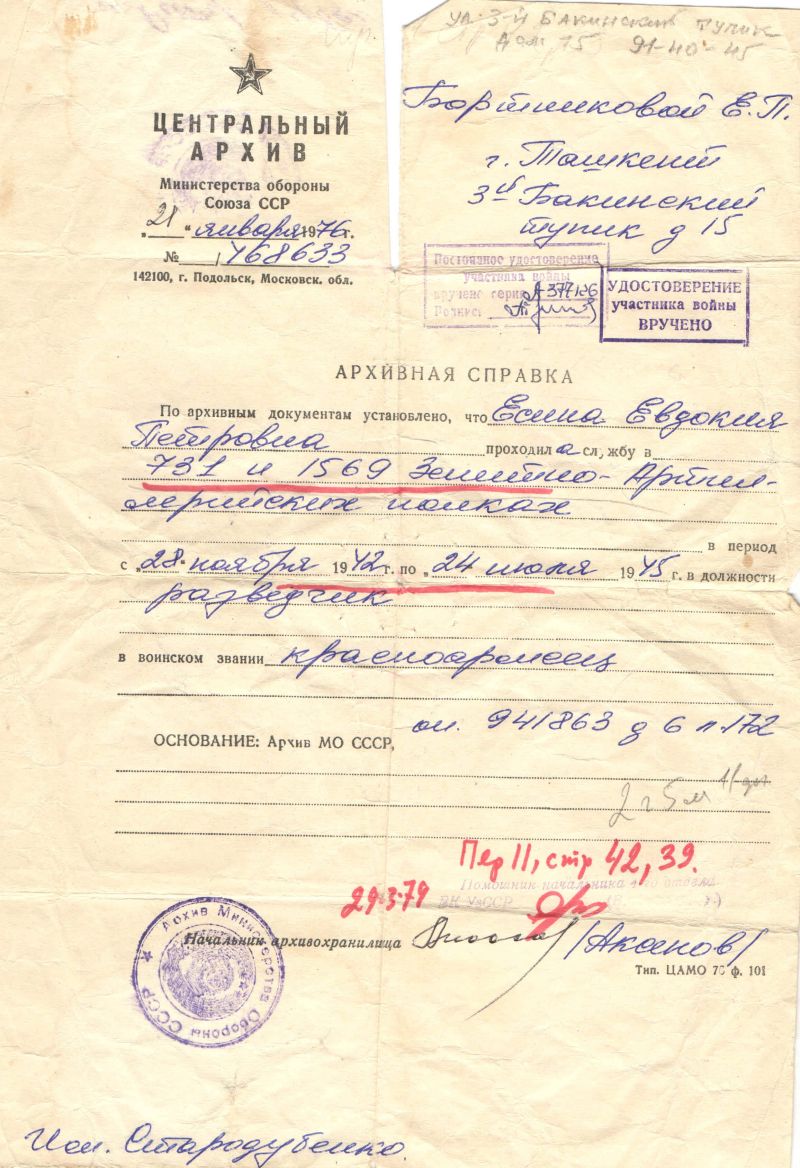 ул 3-й Бакинский тупик
дом 15 91-40-45
ЦЕНТРАЛЬНЫЙ
АРХИВ
Министерства обороны
Союза ССР
„21“ января 1976 г.
№ 1/68633
142100, г. Подольск, Московск. обл.
Бортниковой Е.П.
г. Ташкент
3й Бакинский
тупик д 15
Постоянное удостоверение
участника войны
вручено серия А 377136
Подпись
УДОСТОВЕРЕНИЕ
участника войны
ВРУЧЕНО
АРХИВНАЯ СПРАВКА
По архивным документам установлено, что Есина Евдокия
Петровна проходила службу в
731 и 1569 Зенитно-Артил-
лерийских полках
в период
с „28“ ноября 1942 г. по „24 июля 1945 г. в должности
разведчик
в воинском звании красноармеец
ОСНОВАНИЕ: Архив МО СССР, оп. 941863 д 6 л.172
2 г 5 м
Пер II, стр 42, 39.
Помошник начальника отдела
ВК УзССР
29.3.79
Начальник архивохранилища /Аканов/
Тип. ЦАМО 76 ф. 101
Архив Министерства Обороны СССР
Исп. Стародубенко.